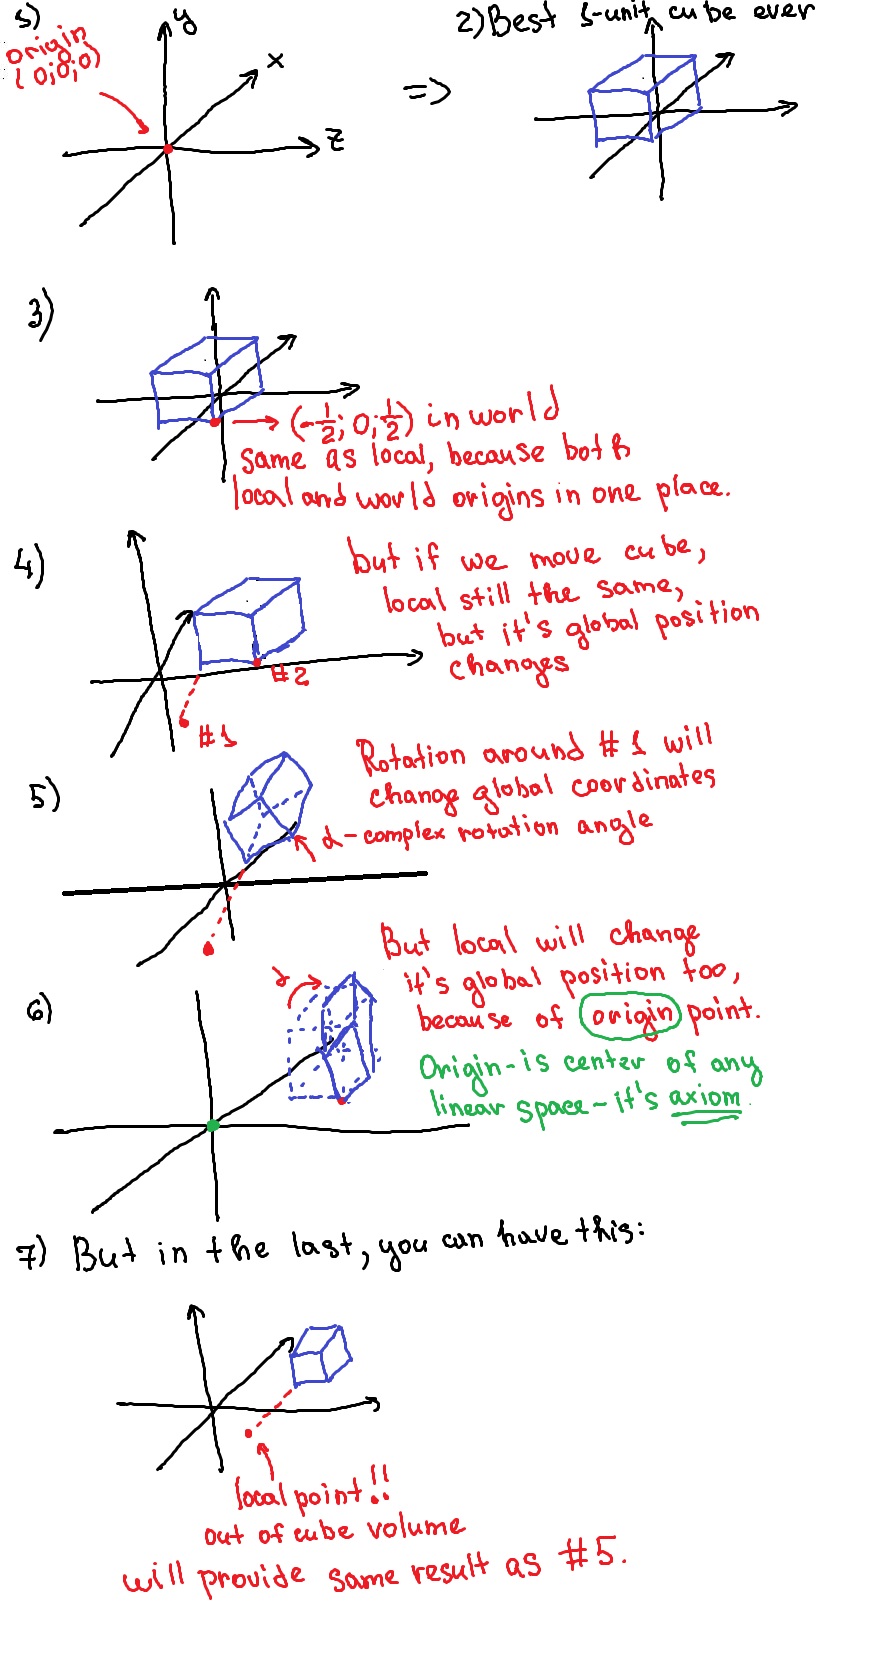 1)
origin
(0;0;0)
y
x
z
=>
2) Best 1-unit cube ever
3)
(-1/2; 0; 1/2) in world
same as local, because both
local and world origins in one place.
4)
but if we move cube,
local still the same,
but it's global position
changes
#2
#1
5)
Rotation around #1 will
change global coordinates
α - complex rotation angle
6)
α
But local will change
it's global position too,
because of origin point.
Origin - is center of any
linear space - it's axiom.
7) But in the last, you can have this:
local point!!
out of cube volume
will provide same result as #5.